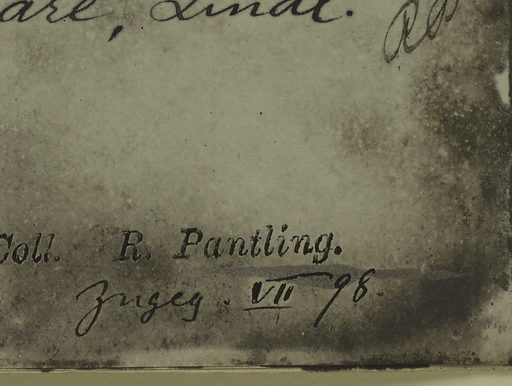 are, Lindl.
Coll. R. Pantling.
Zugeg. VII 98.